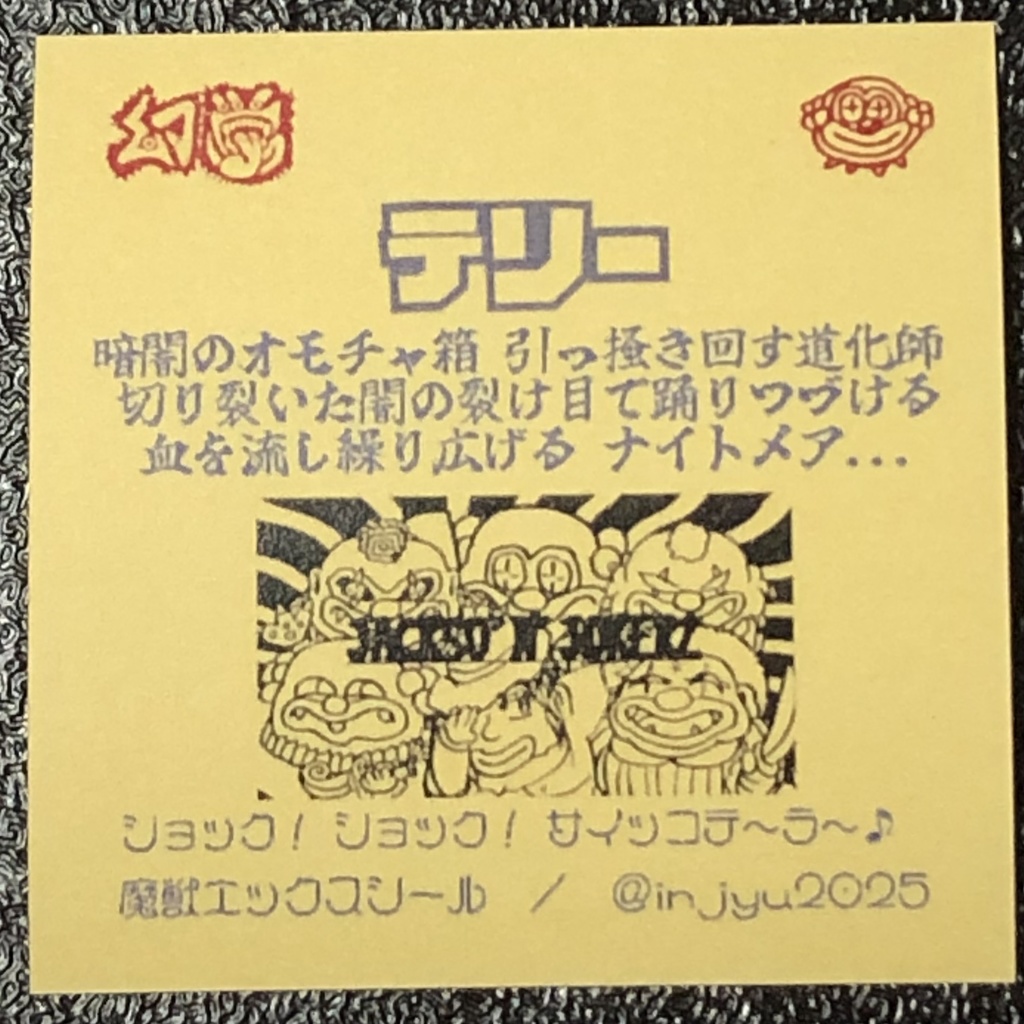 幻学
テリー
暗闇のオモチャ箱 引っ掻き回す道化師
切り裂いた闇の裂け目で踊りつづける
血を流し繰り広げる ナイトメア...
JACKSO' N' JOKERZ
ショック! ショック! サイッコテ〜ラ〜♪
魔獣エックスシール / @in_jyu2025